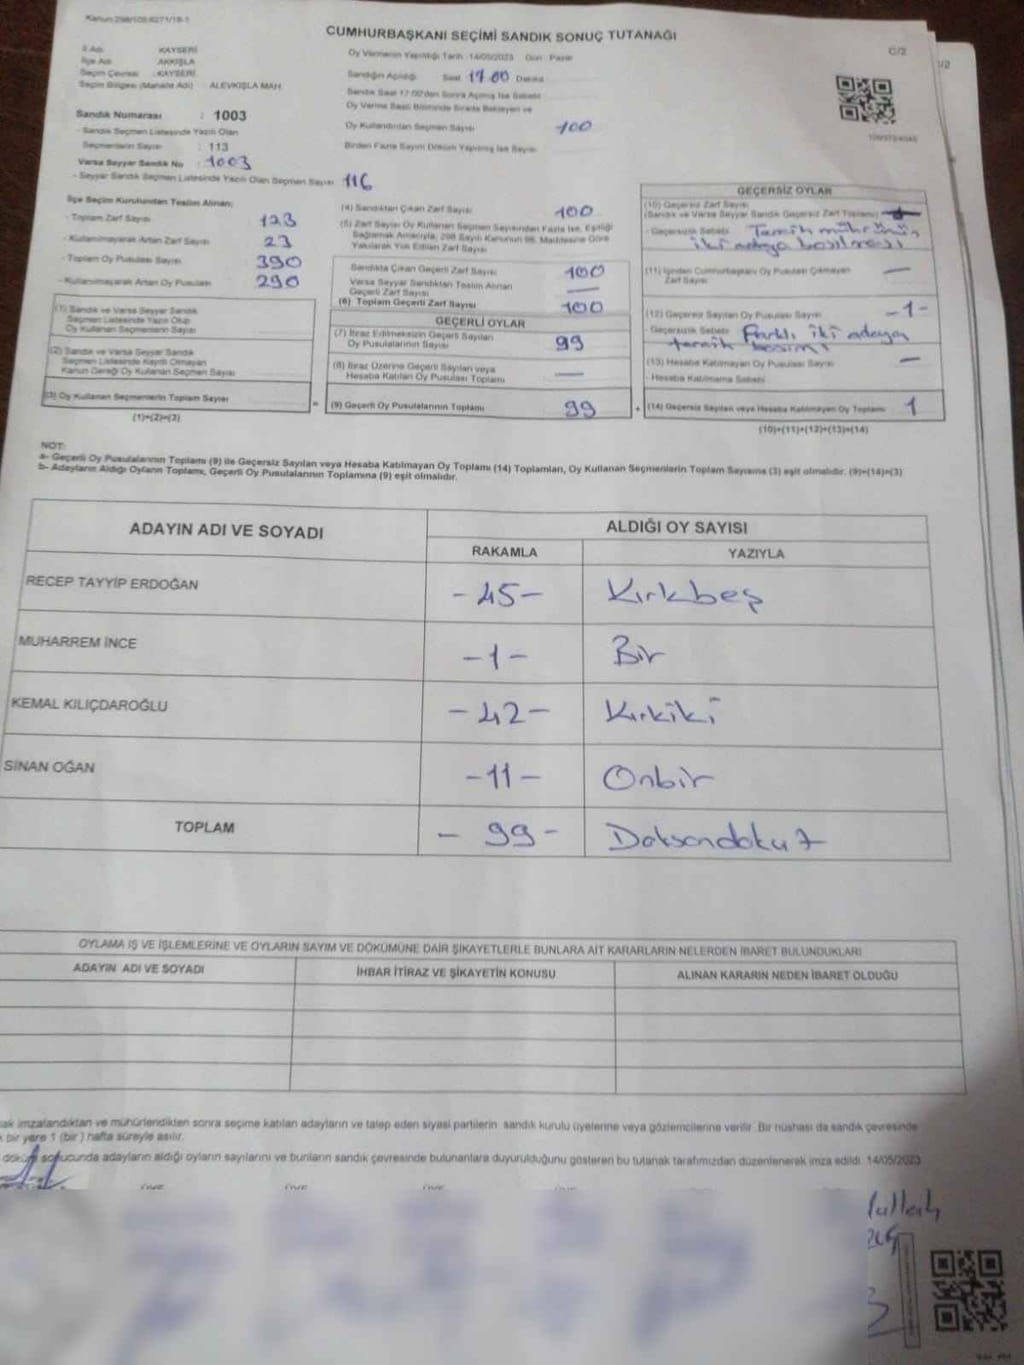 Kanun:298/105;6271/18-1
CUMHURBAŞKANI SEÇİMİ SANDIK SONUÇ TUTANAĞI
C/2
1/2
İl Adı : KAYSERİ
İlçe Adı : AKKIŞLA
Seçim Çevresi : KAYSERİ
Seçim Bölgesi (Mahalle Adı) : ALEVKIŞLA MAH.
Sandık Numarası : 1003
- Sandık Seçmen Listesinde Yazılı Olan
Seçmenlerin Sayısı : 113
Varsa Seyyar Sandık No : 1003
- Seyyar Sandık Seçmen Listesinde Yazılı Olan Seçmen Sayısı 116
Oy Vermenin Yapıldığı Tarih :14/05/2023 Gün : Pazar
Sandığın Açıldığı Saat 17.00 Dakika
Sandık Saat 17:00'den Sonra Açılmış İse Sebebi
Oy Verme Saati Bitiminde Sırada Bekleyen ve
Oy Kullandırılan Seçmen Sayısı 100
Birden Fazla Sayım Döküm Yapılmış İse Sayısı
İlçe Seçim Kurulundan Teslim Alınan;
- Toplam Zarf Sayısı 123
- Kullanılmayarak Artan Zarf Sayısı 23
- Toplam Oy Pusulası Sayısı 390
- Kullanılmayarak Artan Oy Pusulası 290
(1) Sandık ve Varsa Seyyar Sandık
Seçmen Listesinde Yazılı Olup
Oy Kullanan Seçmenlerin Sayısı
(2) Sandık ve Varsa Seyyar Sandık
Seçmen Listesinde Kayıtlı Olmayan
Kanun Gereği Oy Kullanan Seçmen Sayısı
(3) Oy Kullanan Seçmenlerin Toplam Sayısı
(1)+(2)=(3)
(4) Sandıktan Çıkan Zarf Sayısı 100
(5) Zarf Sayısı Oy Kullanan Seçmen Sayısından Fazla İse, Eşitliği
Sağlamak Amacıyla; 298 Sayılı Kanunun 98. Maddesine Göre
Yakılarak Yok Edilen Zarf Sayısı
Sandıkta Çıkan Geçerli Zarf Sayısı 100
Varsa Seyyar Sandıktan Teslim Alınan
Geçerli Zarf Sayısı —
(6) Toplam Geçerli Zarf Sayısı 100
GEÇERLİ OYLAR
(7) İtiraz Edilmeksizin Geçerli Sayılan
Oy Pusulalarının Sayısı 99
(8) İtiraz Üzerine Geçerli Sayılan veya
Hesaba Katılan Oy Pusulası Toplamı —
= (9) Geçerli Oy Pusulalarının Toplamı 99 +
GEÇERSİZ OYLAR
(10) Geçersiz Zarf Sayısı
(Sandık ve Varsa Seyyar Sandık Geçersiz Zarf Toplamı)
- Geçersizlik Sebebi
iki adaya basılması
(11) İçinden Cumhurbaşkanı Oy Pusulası Çıkmayan
Zarf Sayısı —
(12) Geçersiz Sayılan Oy Pusulası Sayısı -1-
- Geçersizlik Sebebi Farklı iki adaya
(13) Hesaba Katılmayan Oy Pusulası Sayısı —
- Hesaba Katılmama Sebebi
(14) Geçersiz Sayılan veya Hesaba Katılmayan Oy Toplamı 1
(10)+(11)+(12)+(13)=(14)
NOT:
a- Geçerli Oy Pusulalarının Toplamı (9) ile Geçersiz Sayılan veya Hesaba Katılmayan Oy Toplamı (14) Toplamları, Oy Kullanan Seçmenlerin Toplam Sayısına (3) eşit olmalıdır. (9)+(14)=(3)
b- Adayların Aldığı Oyların Toplamı, Geçerli Oy Pusulalarının Toplamına (9) eşit olmalıdır.
ADAYIN ADI VE SOYADI
ALDIĞI OY SAYISI
RAKAMLA
YAZIYLA
RECEP TAYYİP ERDOĞAN -45- Kırkbeş
MUHARREM İNCE -1- Bir
KEMAL KILIÇDAROĞLU -42- Kırkiki
SİNAN OĞAN -11- Onbir
TOPLAM -99- Doksandokuz
OYLAMA İŞ VE İŞLEMLERİNE VE OYLARIN SAYIM VE DÖKÜMÜNE DAİR ŞİKAYETLERLE BUNLARA AİT KARARLARIN NELERDEN İBARET BULUNDUKLARI
ADAYIN ADI VE SOYADI
İHBAR İTİRAZ VE ŞİKAYETİN KONUSU
ALINAN KARARIN NEDEN İBARET OLDUĞU
imzalandıktan ve mühürlendikten sonra seçime katılan adayların ve talep eden siyasi partilerin sandık kurulu üyelerine veya gözlemcilerine verilir. Bir nüshası da sandık çevresinde
bir yere 1 (bir ) hafta süreyle asılır.
sonucunda adayların aldığı oyların sayılarını ve bunların sandık çevresinde bulunanlara duyurulduğunu gösteren bu tutanak tarafımızdan düzenlenerek imza edildi. 14/05/2023